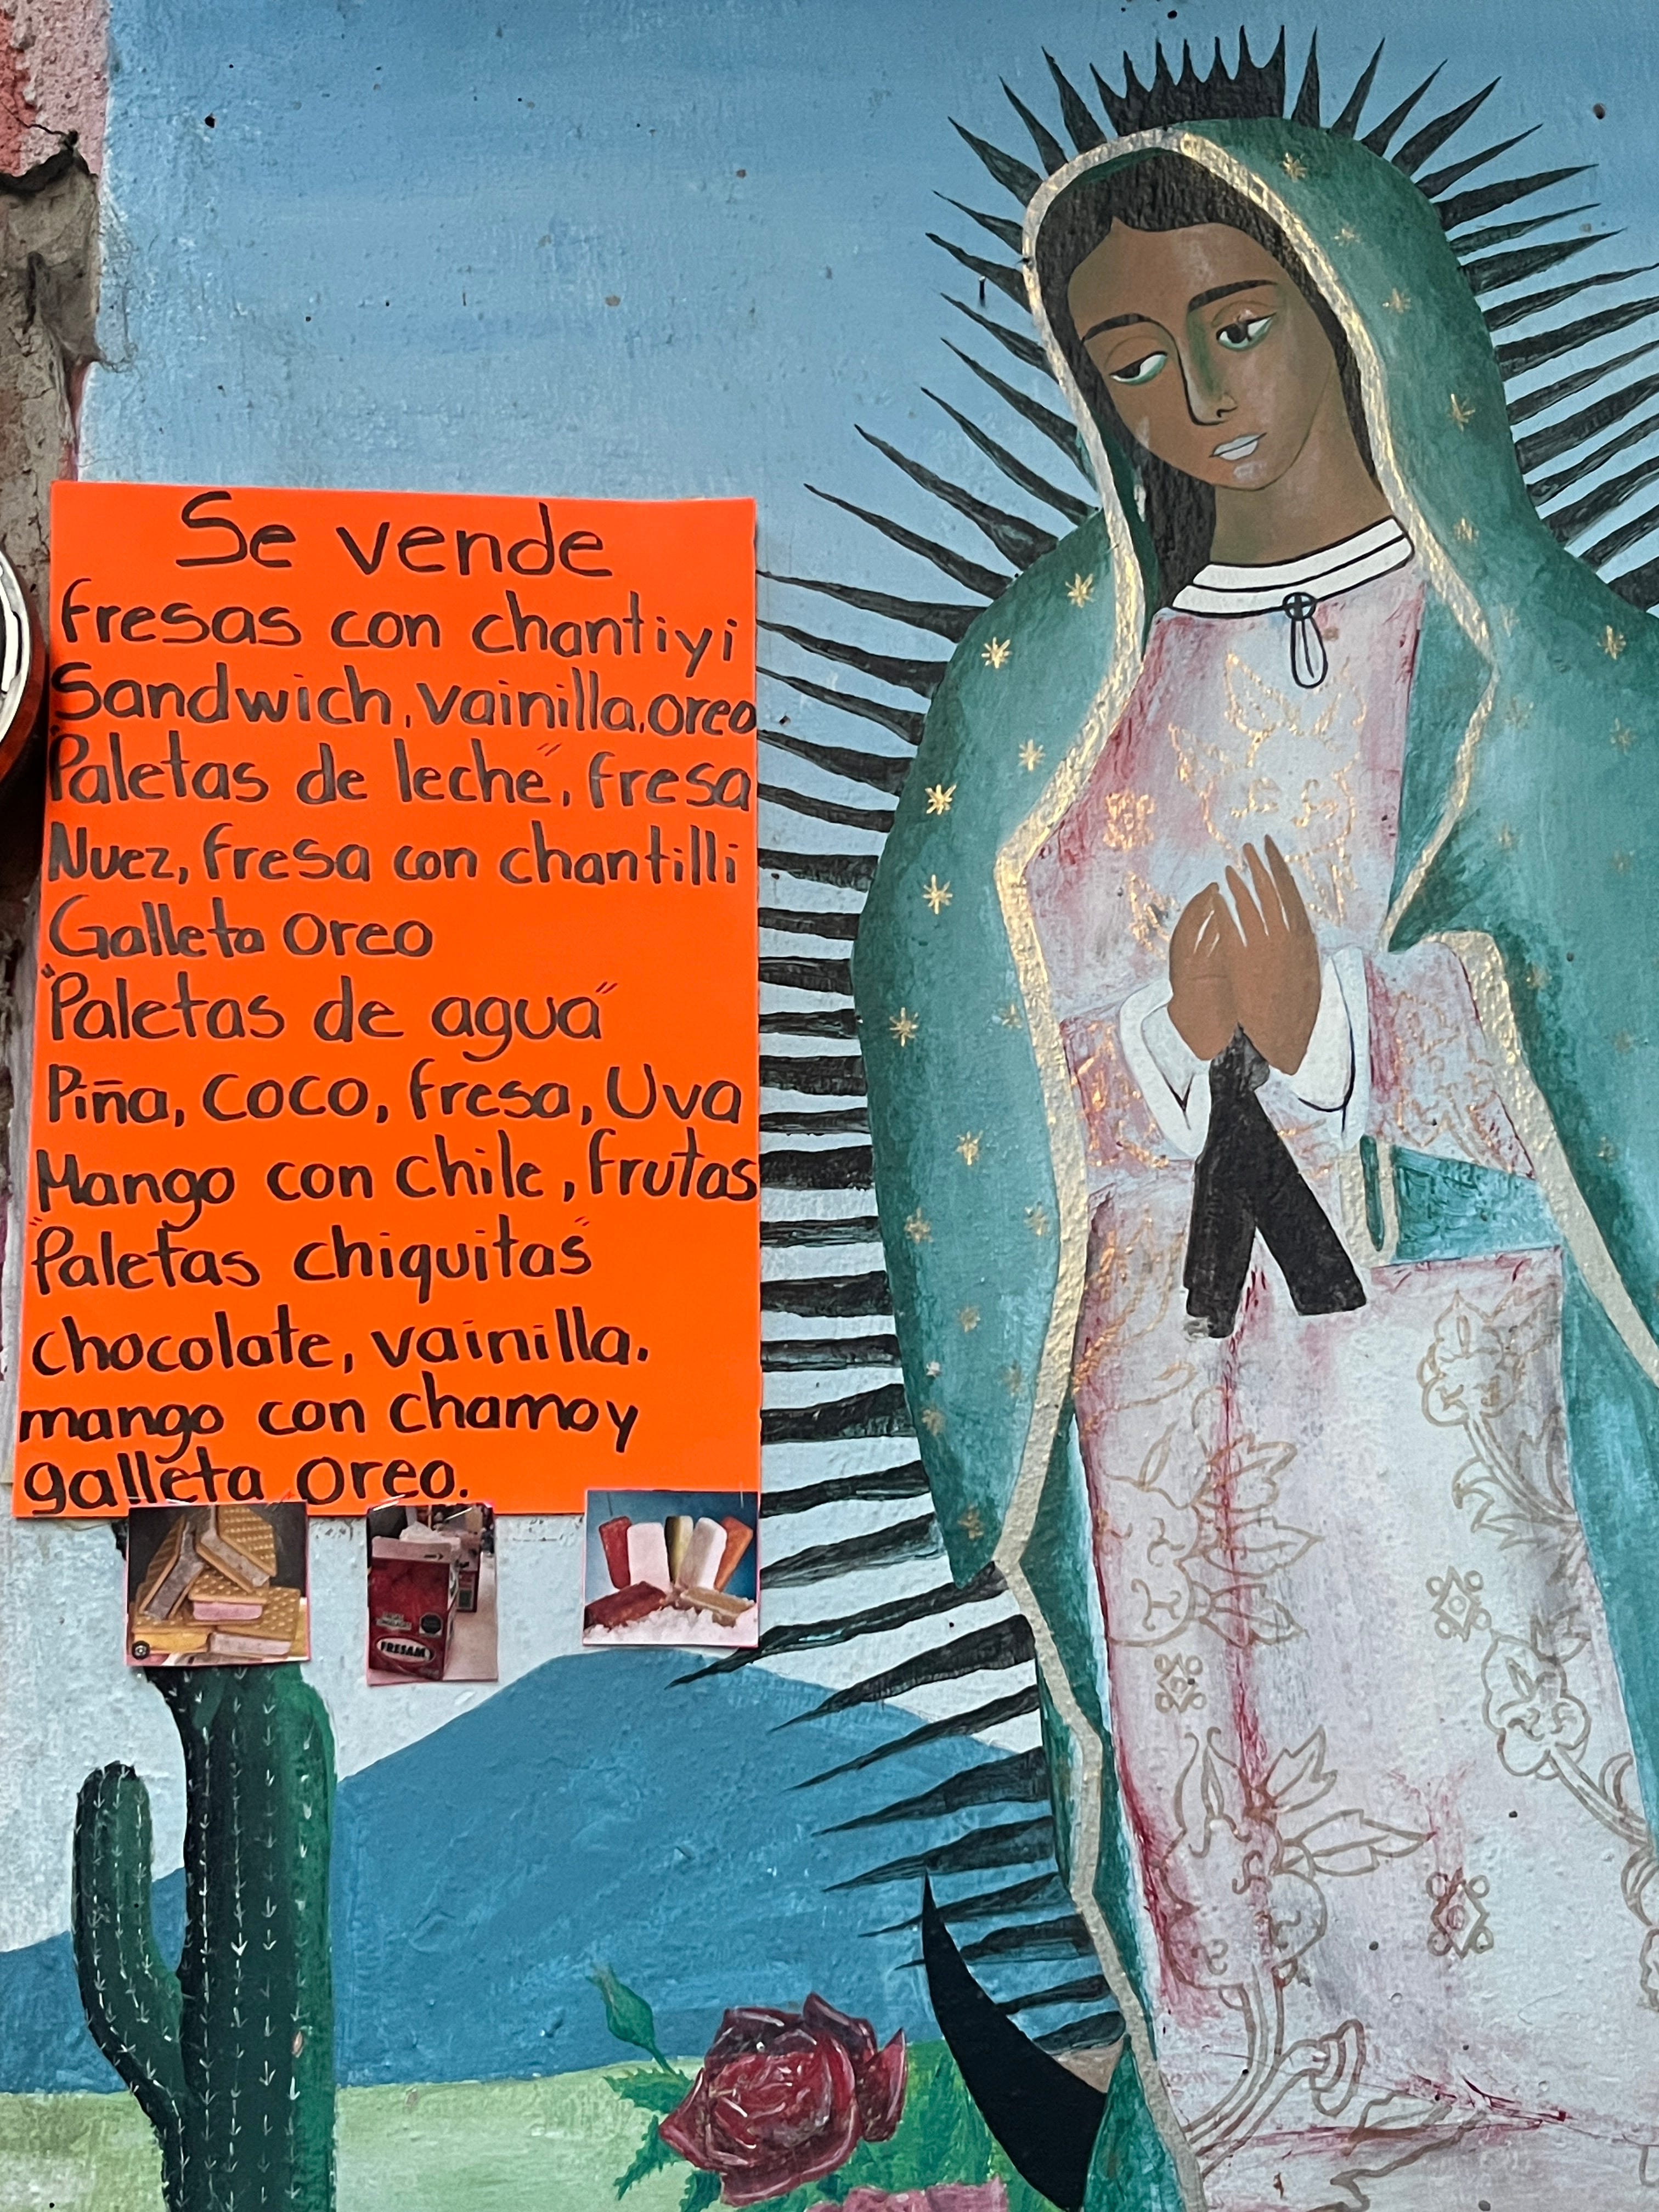 Se vende
fresas con chantiyi
Sandwich, vainilla, oreo
"Paletas de leche", fresa
Nuez, fresa con chantilli
Galleta oreo
"Paletas de agua"
Piña, coco, fresa, Uva
Mango con chile, frutas
"Paletas chiquitas"
chocolate, vainilla.
mango con chamoy
galleta oreo.
FRESAM